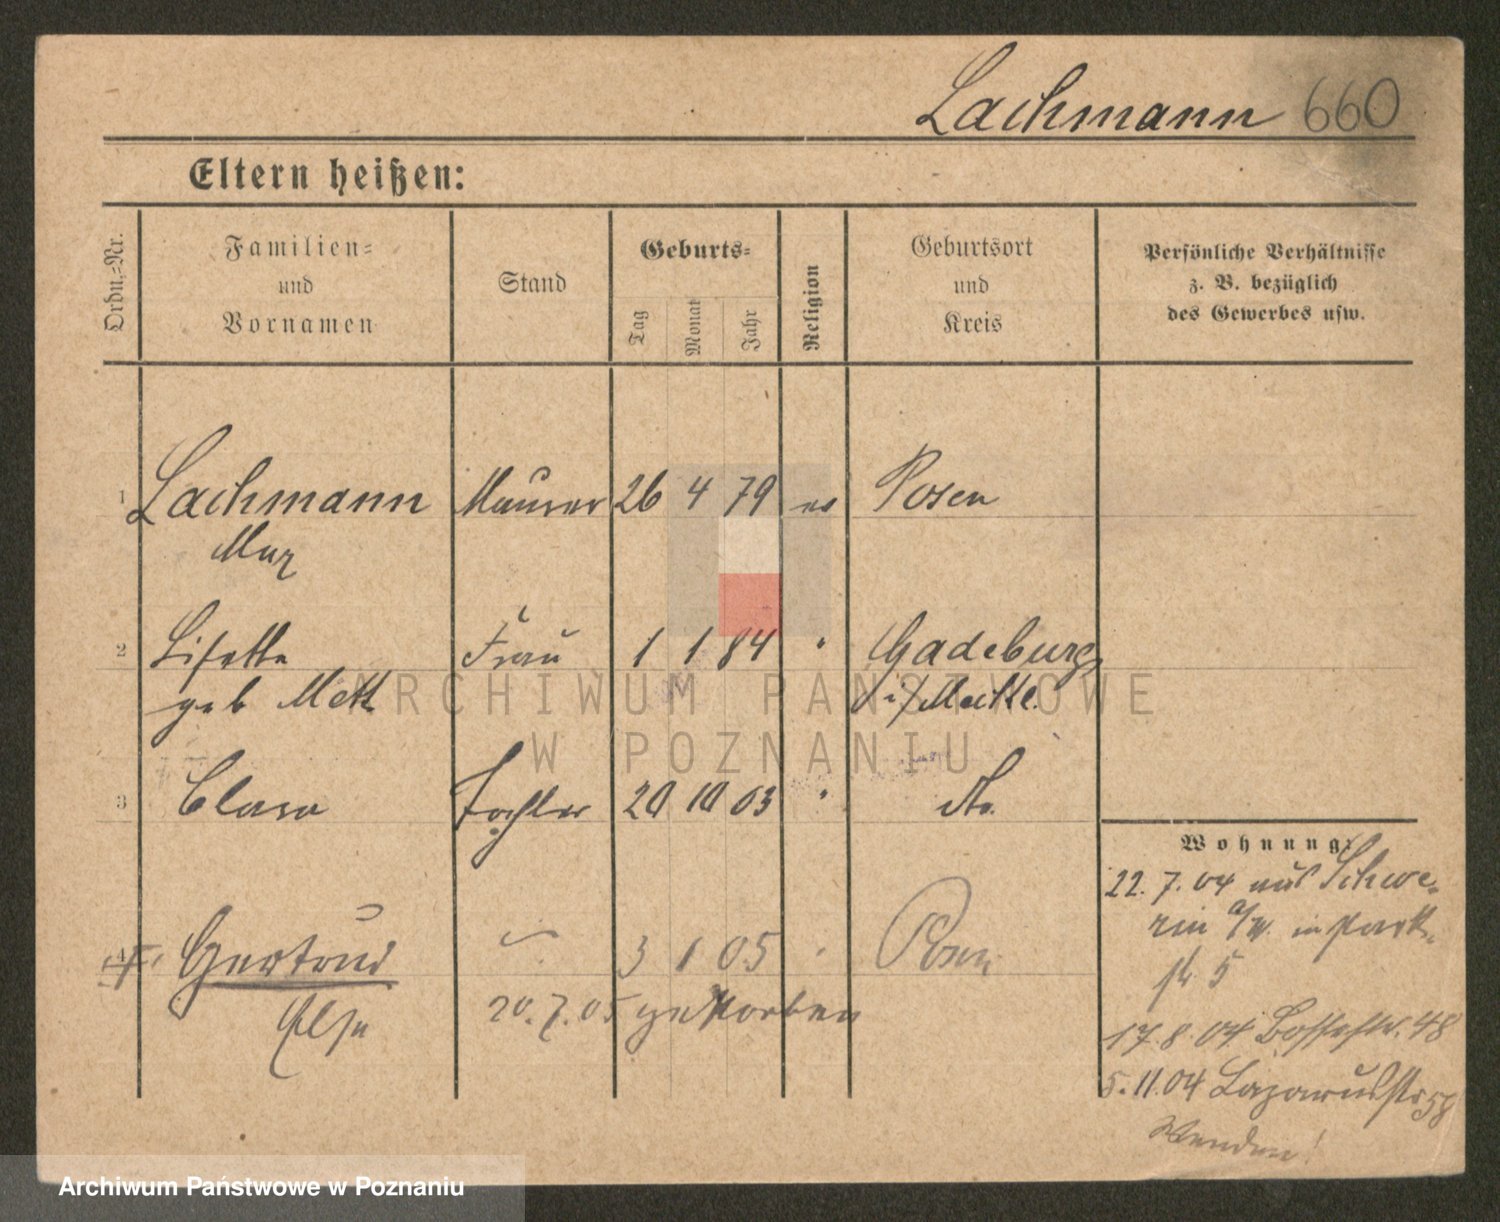 Lachmann 660
Eltern heißen:
Ordn.=Nr.
Familien=
und
Vornamen
Stand
Geburts=
Tag
Monat
Jahr
Religion
Geburtsort
und
Kreis
Persönliche Verhältnisse
z. B. bezüglich
des Gewerbes usw.
1 Lachmann Maurer 26 4 79 ev Posen
Max
2 Lisette Frau 1 1 84 " Gadebusch
geb i/Meckl.
3 Clara Tochter 20 10 03 "
Wohnung:
22. 7. 04 aus Schwe-
rin a/W. in Park-
str 5
4 Gertrud 3 1 05 " Posen
Else 20. 7. 05 gestorben
17. 8. 04 48
5. 11. 04 Lazarusstr 58
Wenden!
ARCHIWUM PAŃSTWOWE
W POZNANIU
Archiwum Państwowe w Poznaniu